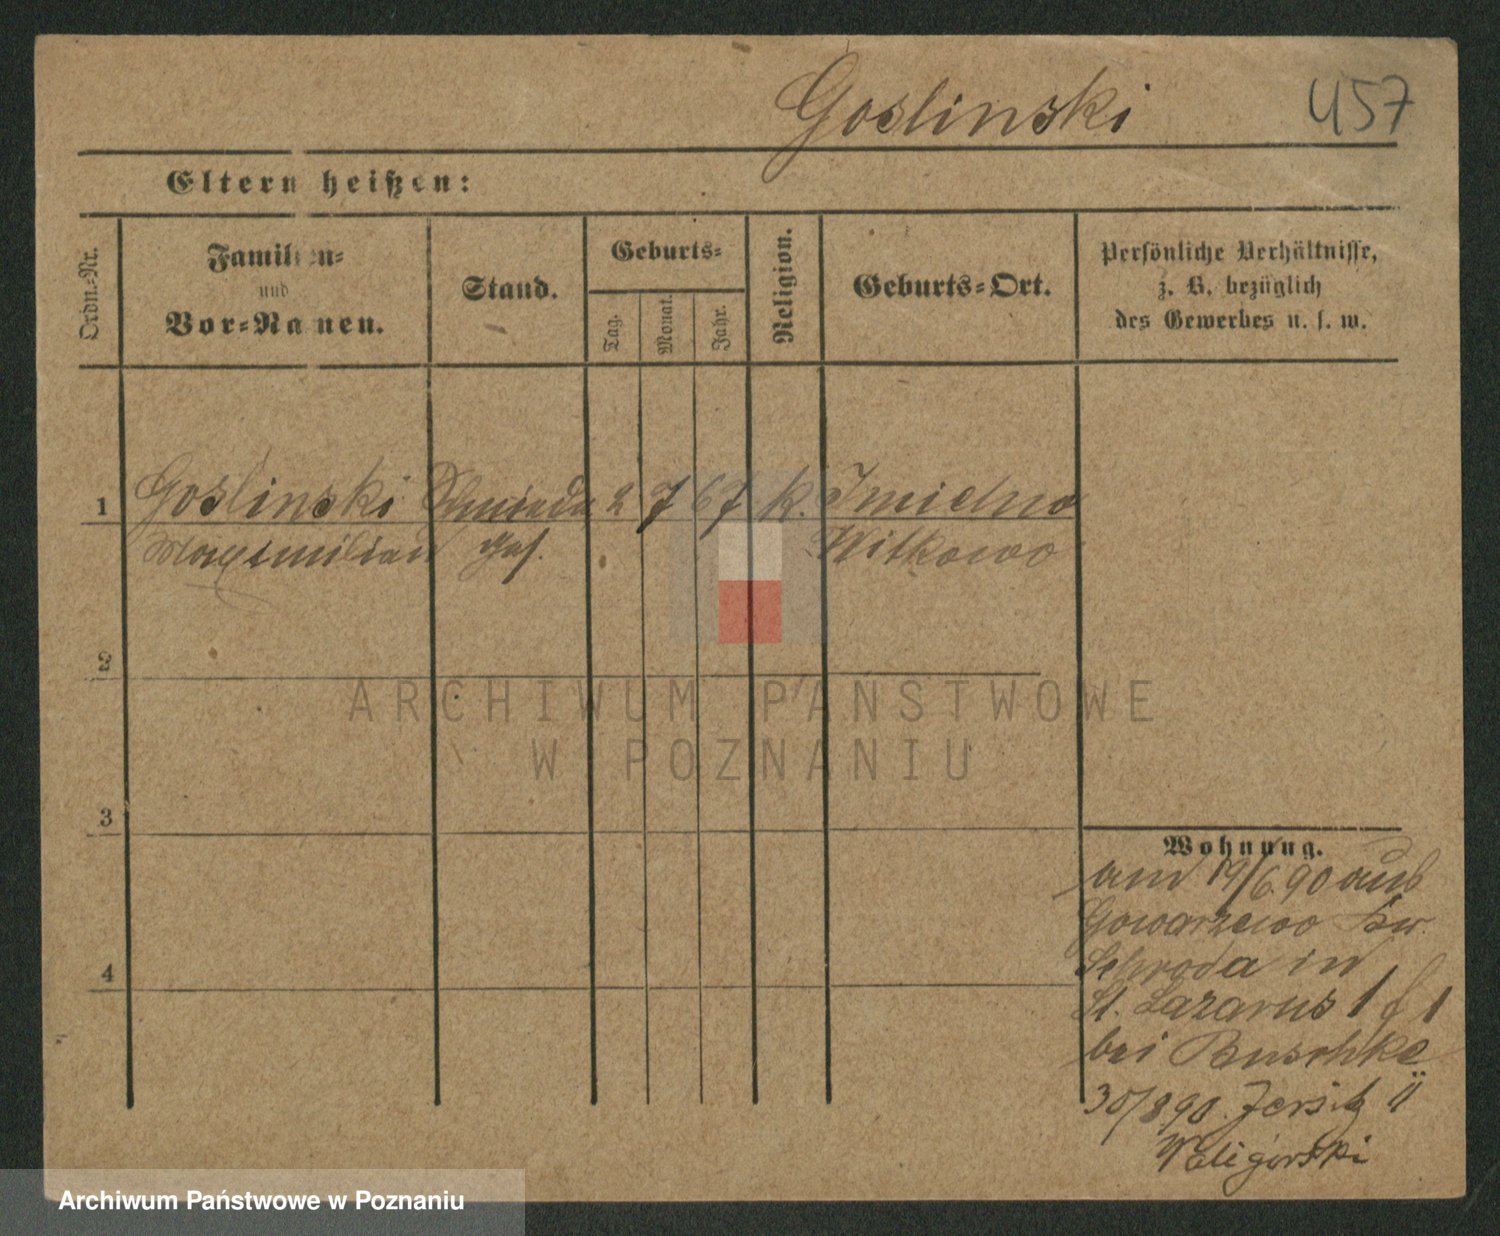 Goslinski 457
Eltern heißen:
Ordn.-Nr.
Familien-
und
Vor-Namen.
Stand.
Geburts-
Tag.
Monat.
Jahr.
Religion.
Geburts-Ort.
Persönliche Verhältnisse,
z. B. bezüglich
des Gewerbes u. s. w.
1 Goslinski Schmiede 2 7 67 k. Imielno
Maximilian Ges. Witkowo
2
3
4
ARCHIWUM PAŃSTWOWE
W POZNANIU
Wohnung.
am 19/6 90 aus
Gowarzewo Kr.
Schroda in
St. Lazarus 1 f 1
bei Buschke
30/8 90. Jersitz 11
Weligorski
Archiwum Państwowe w Poznaniu